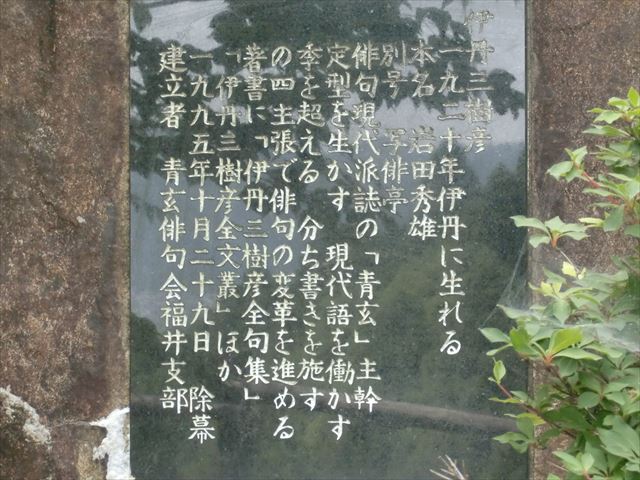 伊丹三樹彦
一九二十年伊丹に生れる
本名 岩田秀雄
別号 写俳亭
俳句現代派誌の「青玄」主幹
定型を生かす 現代語を働かす
季を超える 分ち書きを施す
の四主張で俳句の変革を進める
著書に「伊丹三樹彦全句集」
「伊丹三樹彦全文叢」ほか
一九九五年十月二十九日 除幕
建立者 青玄俳句会福井支部